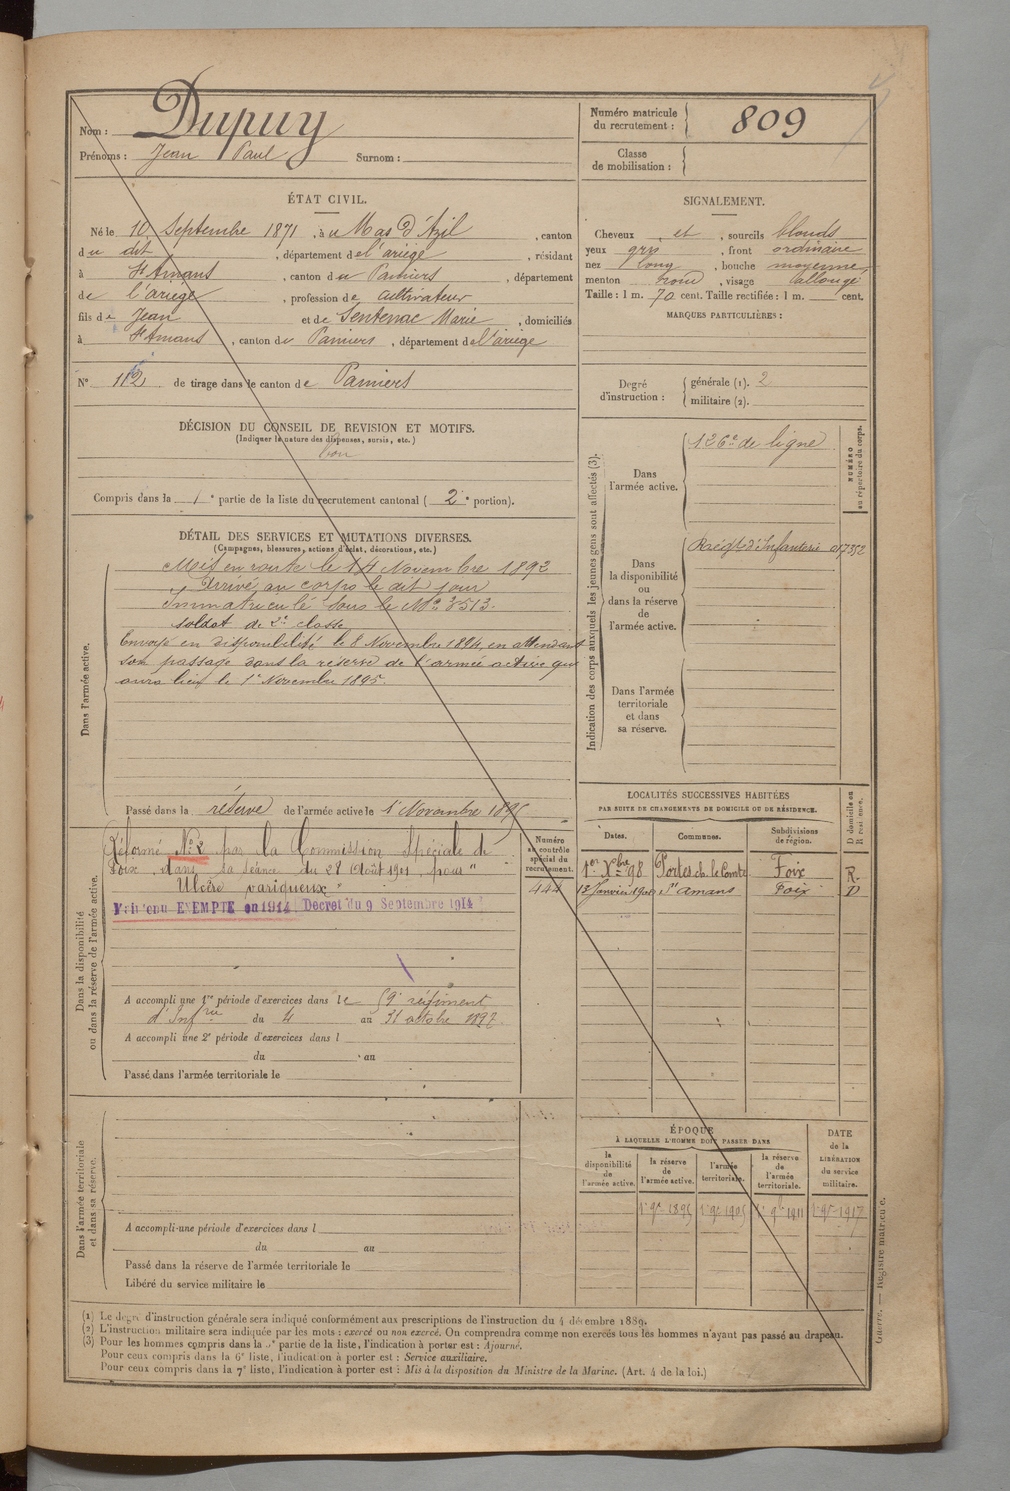 Nom : Dupuy
Prénoms : Jean Paul Surnom :
Numéro matricule du recrutement : 809
Classe de mobilisation :
ÉTAT CIVIL.
Né le 10 Septembre 1871, à u Mas d'Azil, canton
du dit, département de l'ariège, résidant
à St Amans, canton du Pamiers, département
de l'ariège, profession de cultivateur
fils de Jean et de Sentenac Marie, domiciliés
à St Amans, canton du Pamiers, département de l'ariège
N° 112 de tirage dans le canton de Pamiers
DÉCISION DU CONSEIL DE REVISION ET MOTIFS.
(Indiquer la nature des dispenses, sursis, etc.)
bon
Compris dans la 1e partie de la liste du recrutement cantonal (2e portion).
SIGNALEMENT.
Cheveux et, sourcils blonds
yeux gris, front ordinaire
nez long, bouche moyenne
menton rond, visage allongé
Taille : 1 m. 70 cent. Taille rectifiée : 1 m. cent.
MARQUES PARTICULIÈRES :
Degré d'instruction : générale (1). 2
militaire (2).
DÉTAIL DES SERVICES ET MUTATIONS DIVERSES.
(Campagnes, blessures, actions d'éclat, décorations, etc.)
Dans l'armée active.
Mis en route le 14 Novembre 1892
Arrivé au corps le dit jour
Immatriculé sous le No 3513.
soldat de 2e classe
Envoyé en disponibilité le 8 Novembre 1894, en attendant
son passage dans la réserve de l'armée active qui
aura lieu le 1er Novembre 1895.
Passé dans la réserve de l'armée active le 1er Novembre 1895
Indication des corps auxquels les jeunes gens sont affectés (3).
NUMÉRO au répertoire du corps.
Dans l'armée active.
126e de ligne
Dans la disponibilité ou dans la réserve de l'armée active.
Régt d'Infanterie
Dans l'armée territoriale et dans sa réserve.
Dans la disponibilité ou dans la réserve de l'armée active.
Réformé No 2 par la Commission Spéciale de
Foix, dans sa séance du 28 Août 1901, pour "
Ulcère variqueux"
Maintenu EXEMPTÉ en 1914 Décret du 9 Septembre 1914
Numéro au contrôle spécial du recrutement.
444
A accompli une 1re période d'exercices dans le 59e régiment
d'Infrie du 4 au 31 octobre 1897.
A accompli une 2e période d'exercices dans l
du au
Passé dans l'armée territoriale le
LOCALITÉS SUCCESSIVES HABITÉES
PAR SUITE DE CHANGEMENTS DE DOMICILE OU DE RÉSIDENCE.
Dates. Communes. Subdivisions de région. D domicile ou R résidence.
1er Xbre 98 Foix R.
13 Janvier 1900 St Amans Foix D
Dans l'armée territoriale et dans sa réserve.
A accompli une période d'exercices dans l
du au
Passé dans la réserve de l'armée territoriale le
Libéré du service militaire le
ÉPOQUE
À LAQUELLE L'HOMME DOIT PASSER DANS
la disponibilité de l'armée active.
la réserve de l'armée active.
l'armée territoriale.
la réserve de l'armée territoriale.
DATE de la LIBÉRATION du service militaire.
1er 9bre 1895 1er 9bre 1905 1er 9bre 1911 1er 9bre 1917
(1) Le degré d'instruction générale sera indiqué conformément aux prescriptions de l'instruction du 4 décembre 1889.
(2) L'instruction militaire sera indiquée par les mots : exercé ou non exercé. On comprendra comme non exercés tous les hommes n'ayant pas passé au drapeau.
(3) Pour les hommes compris dans la 5e partie de la liste, l'indication à porter est : Ajourné.
Pour ceux compris dans la 6e liste, l'indication à porter est : Service auxiliaire.
Pour ceux compris dans la 7e liste, l'indication à porter est : Mis à la disposition du Ministre de la Marine. (Art. 4 de la loi.)
Guerre. — Registre matricule.